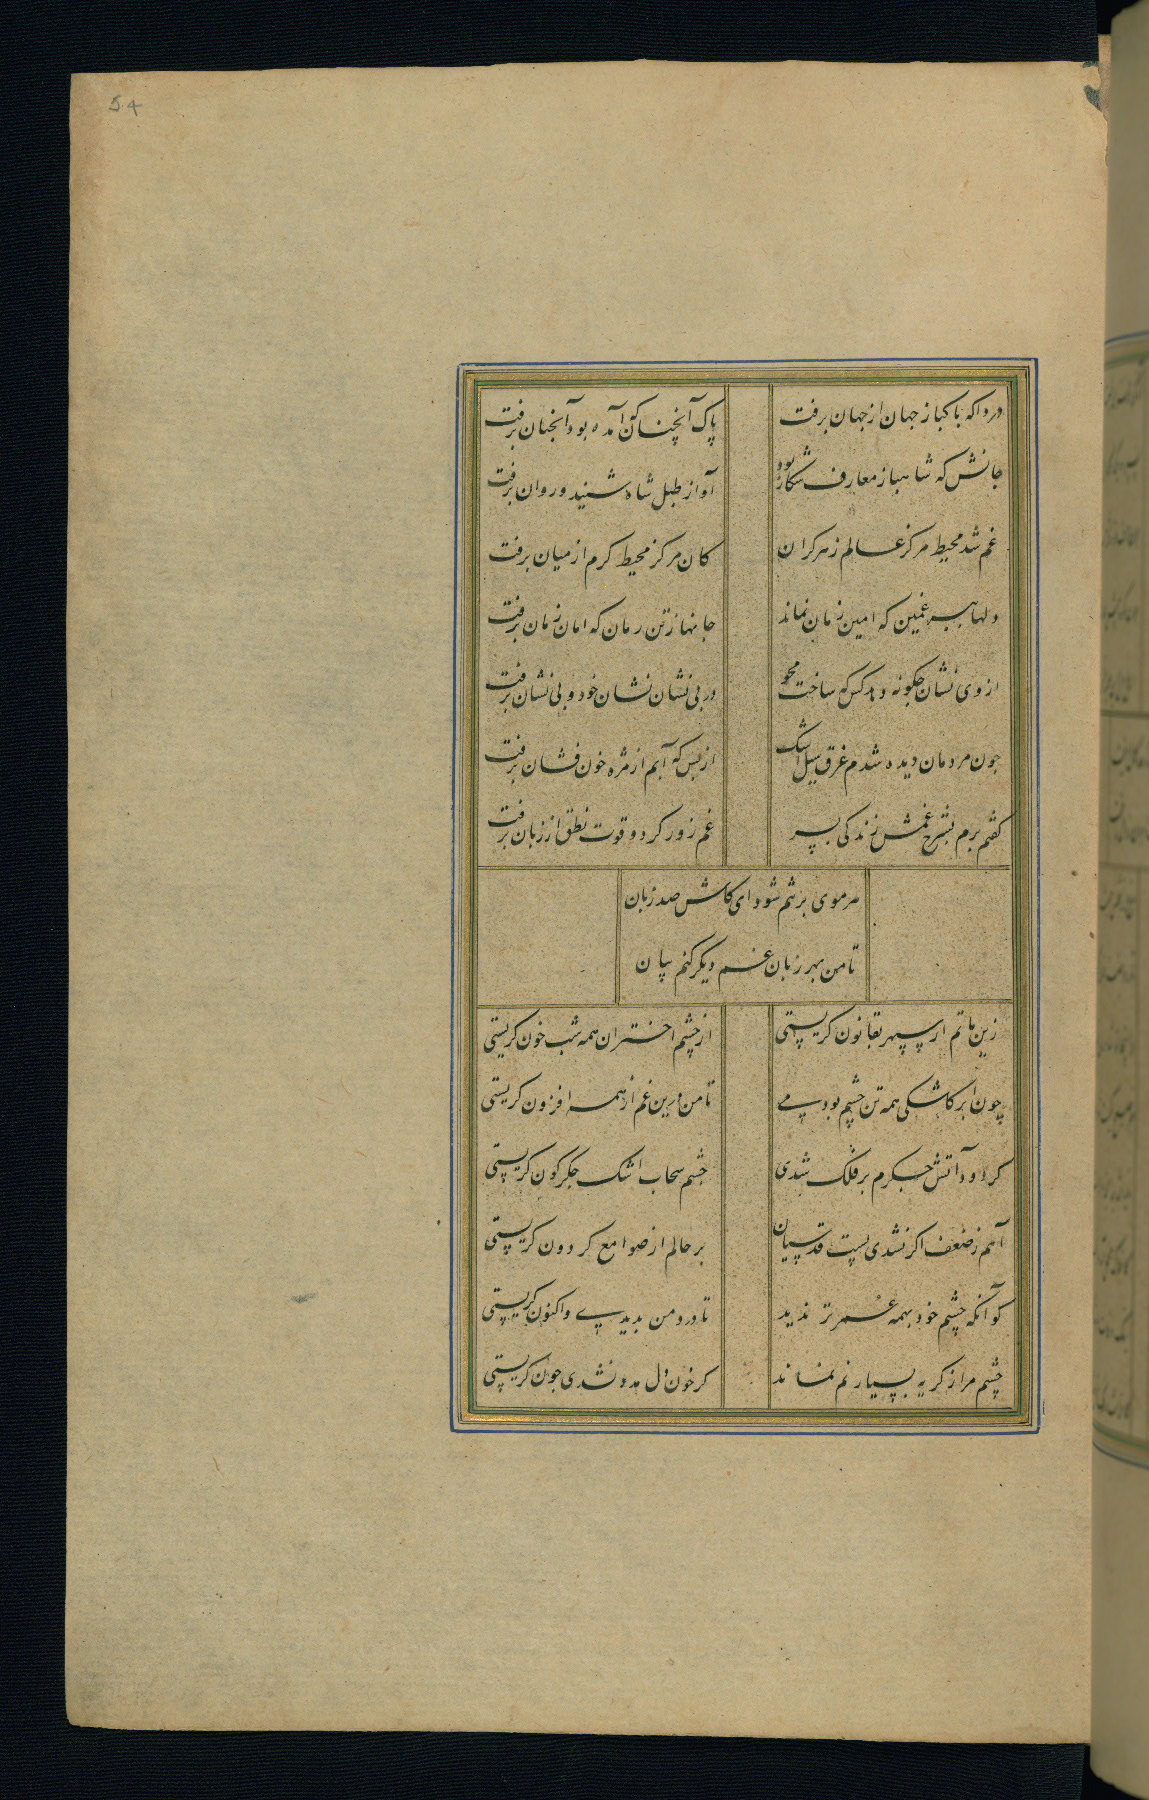 54
درداکه باکباز جهان از جهان برفت
پاک آنچنان کآمده بود آنچنان برفت
جانش که شاهباز معارف شکار بود
آواز طبل شاه شنید و روان برفت
غم شد محیط مرکز عالم ز هر کران
کان مرکز محیط کرم از میان برفت
دلها همه غمین که امین زمان نماند
جانها ز تن رمان که امان زمان برفت
از وی نشان چکونه دهد کس که ساخت محو
در بی نشان نشان خود و بی نشان برفت
چون مردمان دیده شدم غرق سیل اشک
از بس که آبم از مژه خون فشان برفت
کفتم برم بشرح غمش زندکی بسر
غم زور کرد و قوت نطق از زبان برفت
هر موی بر تنم شود ای کاش صد زبان
تا من بهر زبان غم دیکر کنم بیان
زین ماتم ار سپهر بقانون کریستی
از چشم اختران همه شب خون کریستی
چون ابر کاشکی همه تن چشم بودمی
تا من درین غم از همه افزون کریستی
کر دود آتش جکرم بر فلک شدی
چشم سحاب اشک جکرکون کریستی
آهم ز ضعف اکر نشدی پست قدسیان
بر حالم از صوامع کردون کریستی
کو آنکه چشم خود بهمه عمر تر ندید
تا درد من بدیدی و اکنون کریستی
چشم مرا ز کریه بسیار نم نماند
کر خون دل مدد نشدی چون کریستی